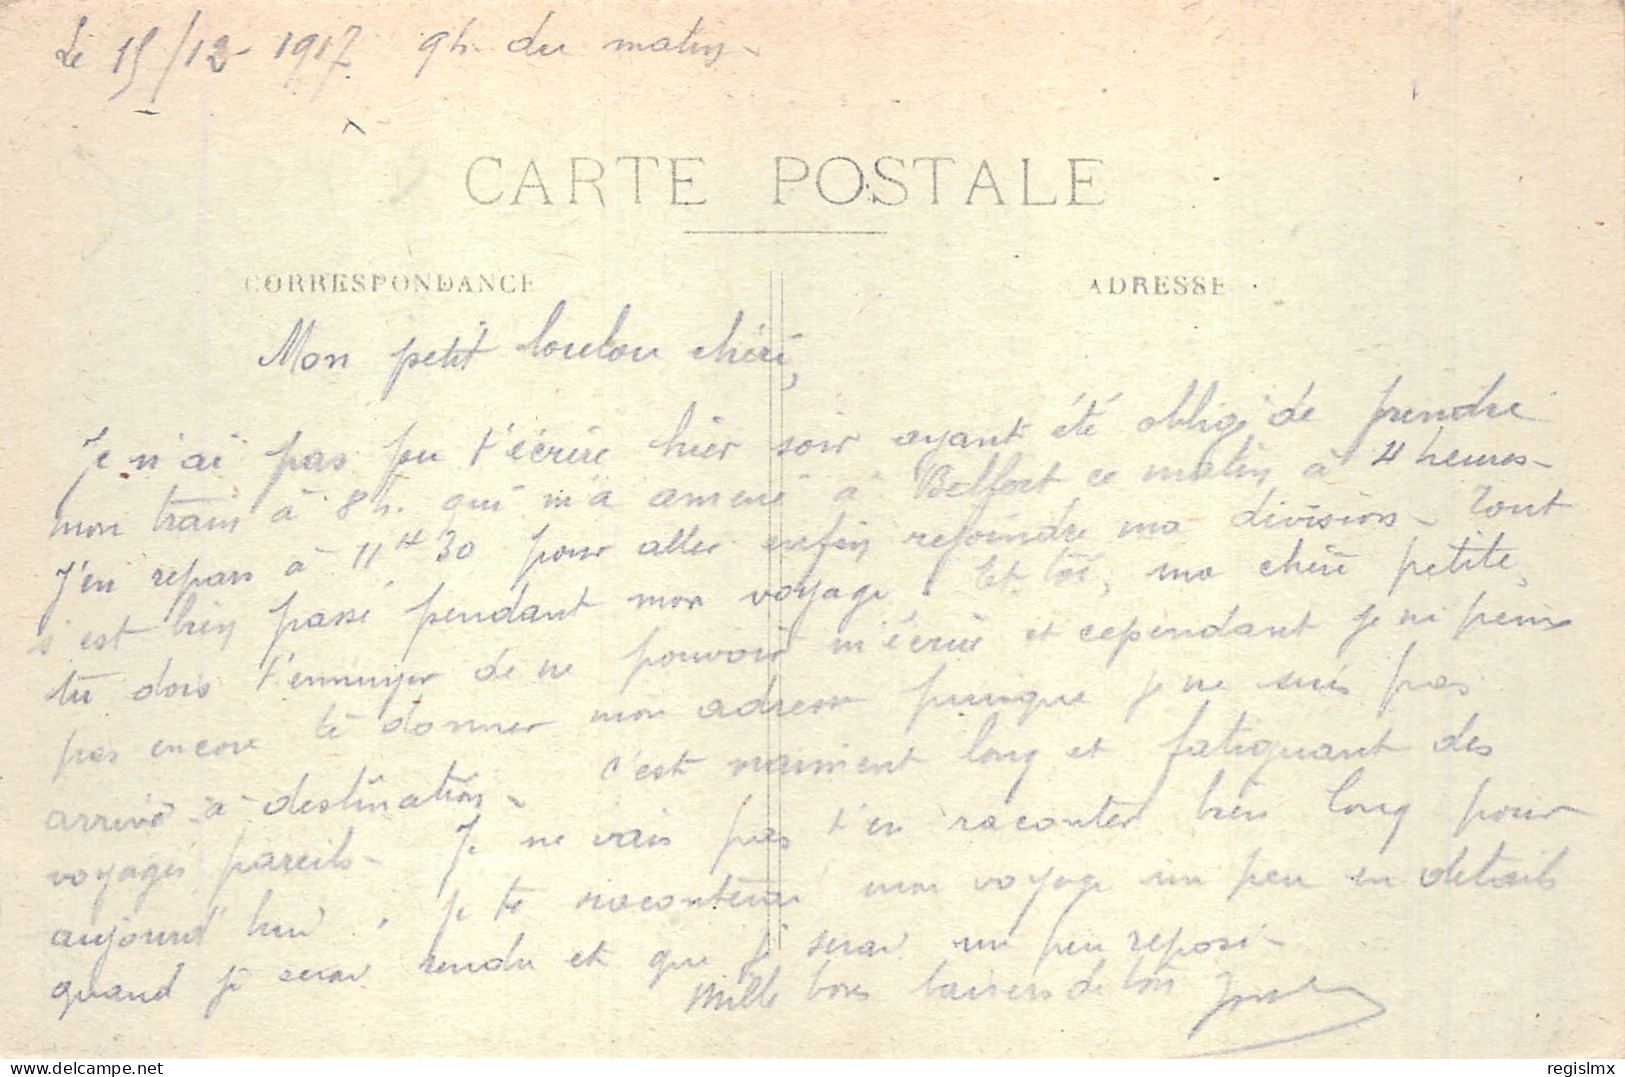 Le 15/12 1917 9h. du matin -
CARTE POSTALE
CORRESPONDANCE
ADRESSE
Mon petit loulou chéri,
Je n'ai pas pu t'écrire hier soir ayant été obligé de prendre
mon train à 8h. qui m'a amené à Belfort ce matin à 4 heures -
J'en repars à 11H30 pour aller enfin rejoindre ma division - Tout
s'est bien passé pendant mon voyage. Et toi, ma chérie petite,
tu dois t'ennuyer de ne pouvoir m'écrire et cependant je ne peux
pas encore te donner mon adresse puisque je ne suis pas
arrivé à destination - c'est vraiment long et fatiguant des
voyages pareils - Je ne vais pas t'en raconter bien long pour
aujourd'hui, je te raconterai mon voyage un peu en détails
quand je serai rendu et que je serai un peu reposé -
Mille bons baisers de ton
delcampe.net
regislmx